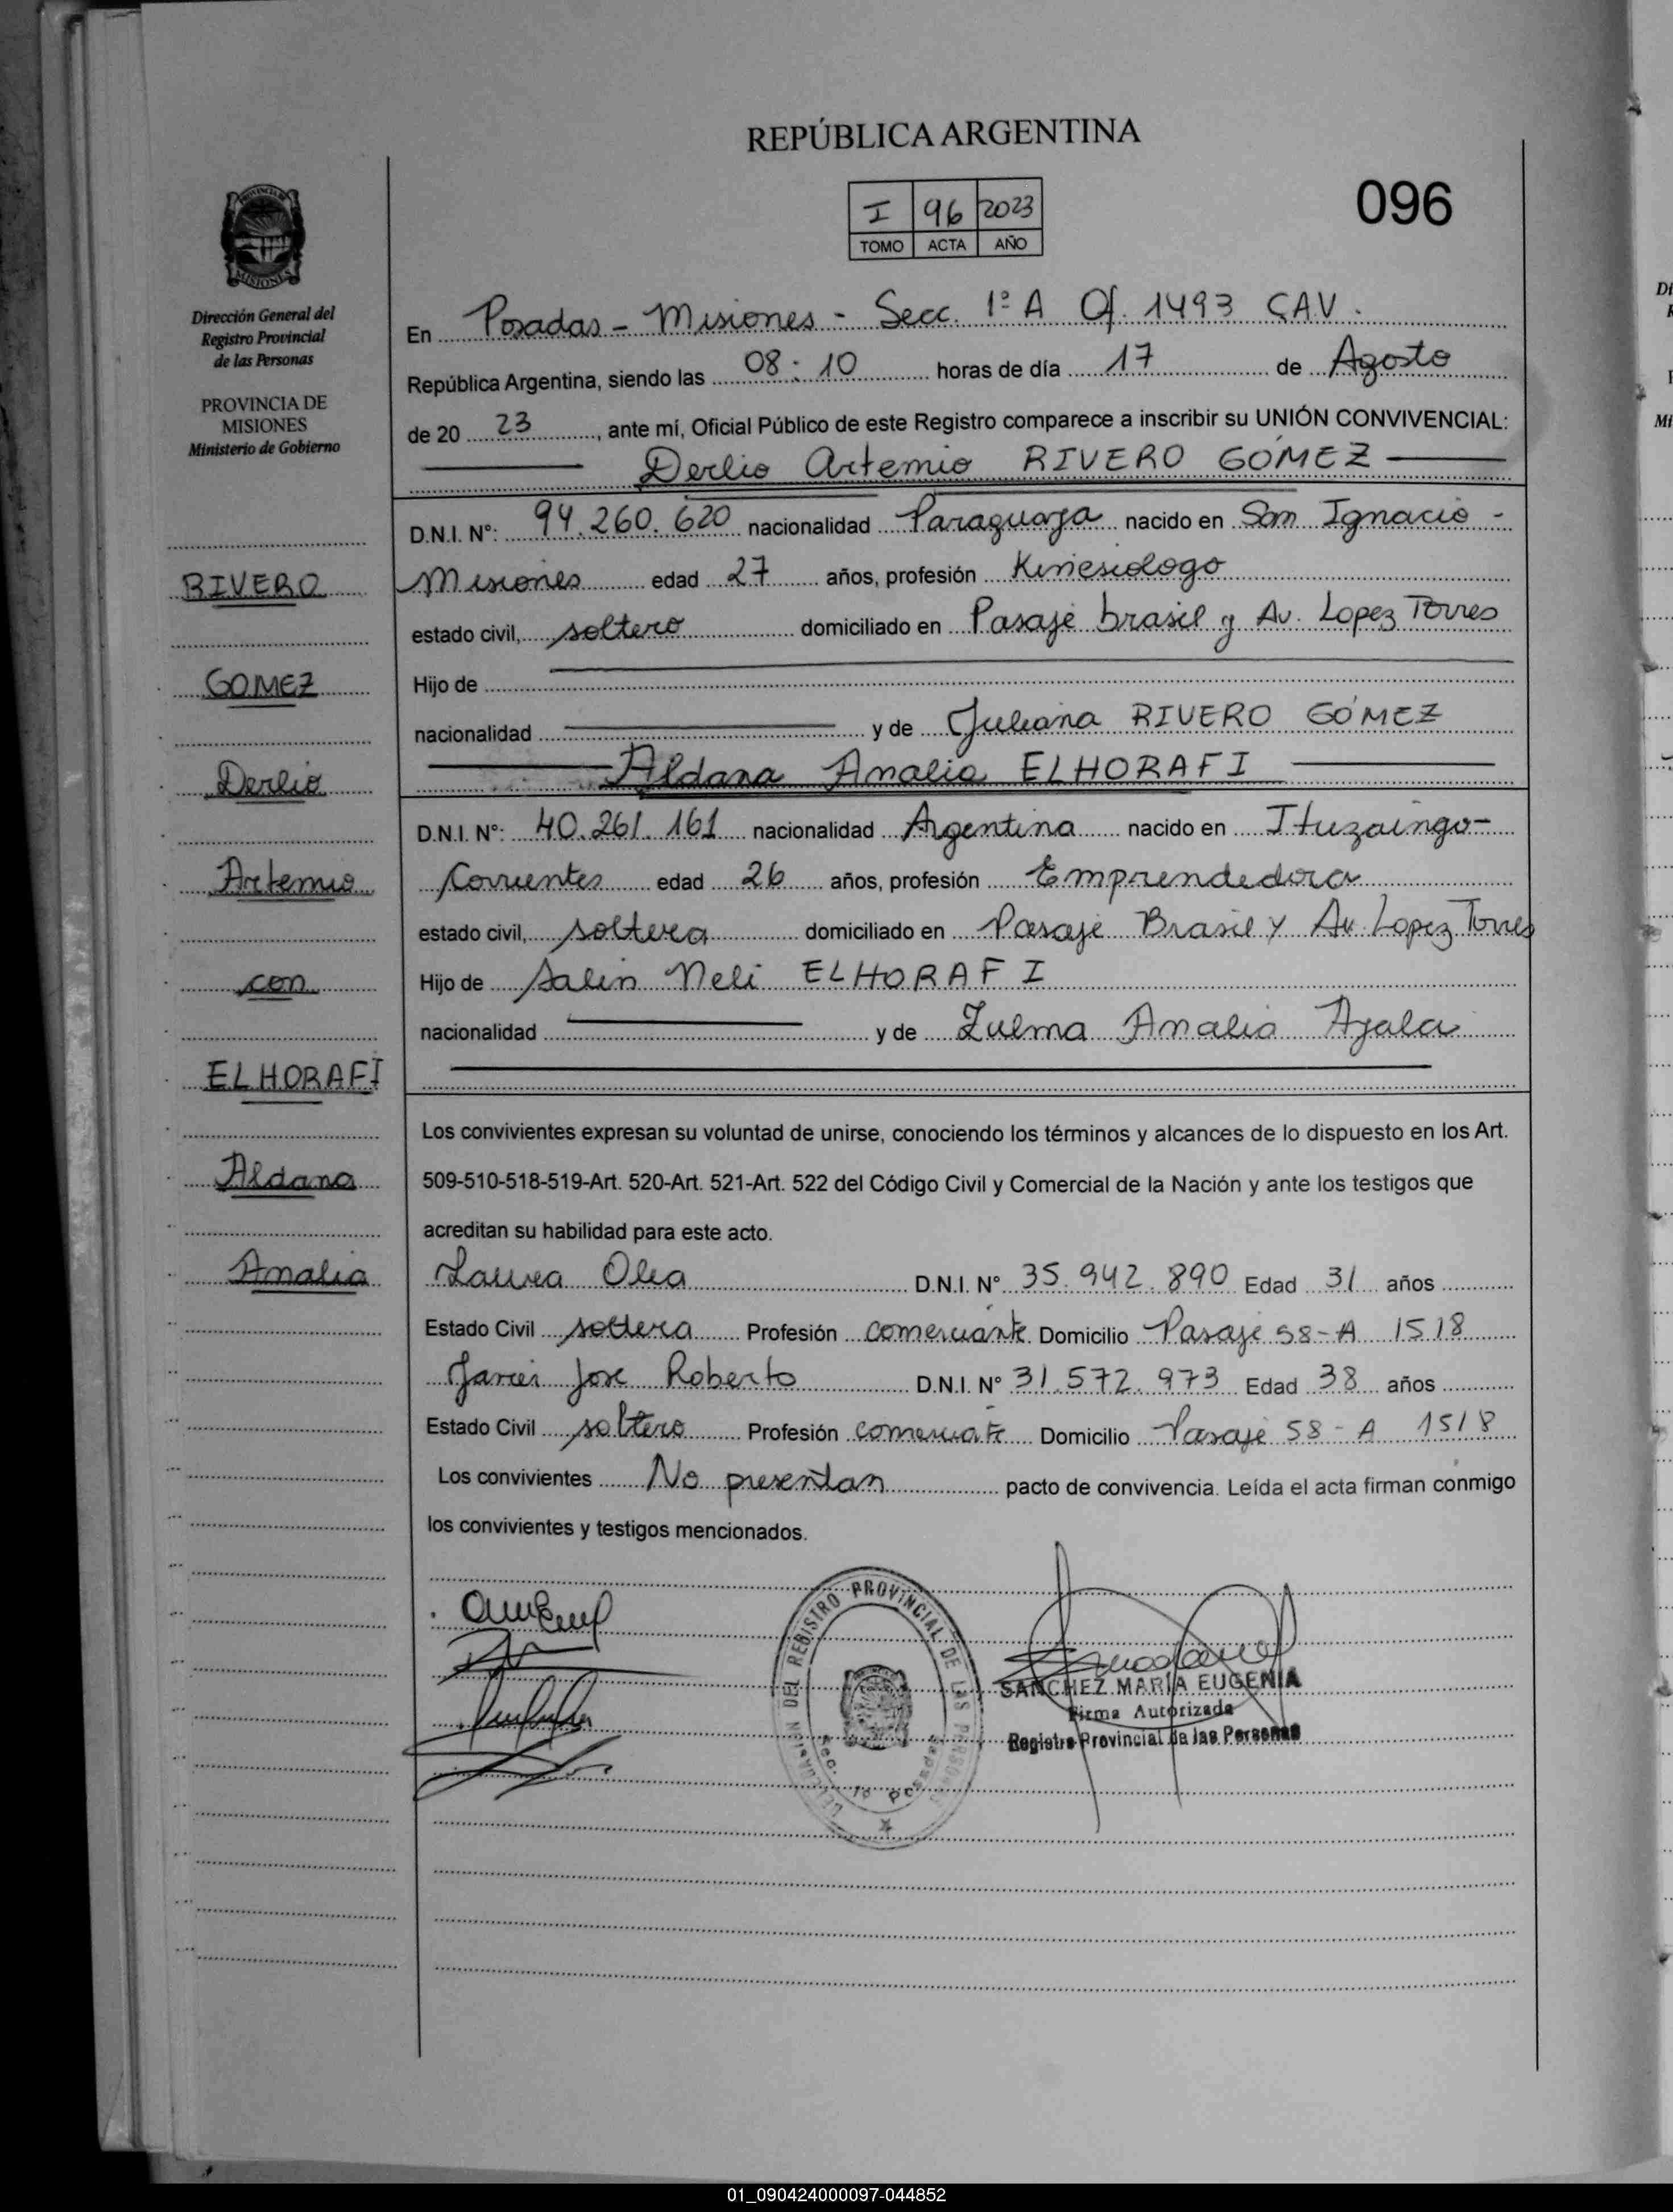 REPÚBLICA ARGENTINA
I 96 2023
TOMO ACTA AÑO
096
PROVINCIA DE
MISIONES
Dirección General del
Registro Provincial
de las Personas
PROVINCIA DE
MISIONES
Ministerio de Gobierno
RIVERO
GOMEZ
Derlio
Artemio
con
ELHORAFI
Aldana
Amalia
En Posadas - Misiones - Secc. 1º A Of. 1493 CAV.
República Argentina, siendo las 08:10 horas de día 17 de Agosto
de 20 23, ante mí, Oficial Público de este Registro comparece a inscribir su UNIÓN CONVIVENCIAL:
Derlio Artemio RIVERO GÓMEZ
D.N.I. Nº: 94.260.620 nacionalidad Paraguaya nacido en San Ignacio -
Misiones edad 27 años, profesión Kinesiologo
estado civil, soltero domiciliado en Pasaje brasil y Av. Lopez Torres
Hijo de
nacionalidad y de Juliana RIVERO GÓMEZ
Aldana Amalia ELHORAFI
D.N.I. Nº: 40.261.161 nacionalidad Argentina nacido en Ituzaingo-
Corrientes edad 26 años, profesión Emprendedora
estado civil, soltera domiciliado en Pasaje Brasil y Av. Lopez Torres
Hijo de Salin Neli ELHORAFI
nacionalidad y de Zulma Amalia Ayala
Los convivientes expresan su voluntad de unirse, conociendo los términos y alcances de lo dispuesto en los Art.
509-510-518-519-Art. 520-Art. 521-Art. 522 del Código Civil y Comercial de la Nación y ante los testigos que
acreditan su habilidad para este acto.
Laura Olea D.N.I. Nº 35.942.890 Edad 31 años
Estado Civil soltera Profesión comerciante Domicilio Pasaje 58-A 1518
Javier Jose Roberto D.N.I. Nº 31.572.973 Edad 38 años
Estado Civil soltero Profesión Domicilio Pasaje 58-A 1518
Los convivientes No presentan pacto de convivencia. Leída el acta firman conmigo
los convivientes y testigos mencionados.
DEL REGISTRO PROVINCIAL DE LAS PERSONAS
Posadas
SANCHEZ MARÍA EUGENIA
Firma Autorizada
Registro Provincial de las Personas
01_090424000097-044852